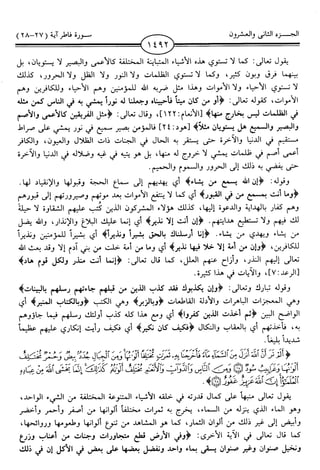 الجـــزء الثانى والعشرون
١٤٩٢
سورة فاطر آية (٢٧-٢٨)
يقول تعالى: كما لا تستوي هذه الأشياء المتباينة المختلفة كالأعمى والبصير لا يستويان، بل
بينهما فرق وبون كثير، وكما لا تستوي الظلمات ولا النور ولا الظل ولا الحرور، كذلك
لا تستوي الأحياء ولا الأموات وهذا مثل ضربه الله للمؤمنين وهم الأحياء، وللكافرين وهم
الأموات، كقوله تعالى: ﴿أو من كان ميتاً فأحييناه وجعلنا له نوراً يمشي به في الناس كمن مثله
في الظلمات ليس بخارج منها﴾ [الأنعام: ١٢٢]، وقال تعالى: ﴿مثل الفريقين كالأعمى والأصم
والبصير والسميع هل يستويان مثلاً﴾ [هود: ٢٤] فالمؤمن بصير سميع في نور يمشي على صراط
مستقيم في الدنيا والآخرة حتى يستقر به الحال في الجنات ذات الظلال والعيون، والكافر
أعمى أصم في ظلمات يمشي لا خروج له منها، بل هو يتيه في غيه وضلاله في الدنيا والآخرة
حتى يفضي به ذلك إلى الحرور والسموم والحميم.
وقوله: ﴿إن الله يسمع من يشاء﴾ أي يهديهم إلى سماع الحجة وقبولها والانقياد لها.
﴿وما أنت بمسمع من في القبور﴾ أي كما لا ينتفع الأموات بعد موتهم وصيرورتهم إلى قبورهم
وهم كفار بالهداية والدعوة إليها، كذلك هؤلاء المشركون الذين كتب عليهم الشقاوة لا حيلة
لك فيهم ولا تستطيع هدايتهم. ﴿إن أنت إلا نذير﴾ أي إنما عليك البلاغ والإنذار، والله يضل
من يشاء ويهدي من يشاء. ﴿إنا أرسلناك بالحق بشيراً ونذيراً﴾ أي بشيراً للمؤمنين ونذيراً
للكافرين، ﴿وإن من أمة إلا خلا فيها نذير﴾ أي وما من أمة خلت من بني آدم إلا وقد بعث الله
تعالى إليهم النذر، وأزاح عنهم العلل، كما قال تعالى: ﴿إنما أنت منذر ولكل قوم هاد﴾
[الرعد: ٧]، والآيات في هذا كثيرة.
وقوله تبارك وتعالى: ﴿وإن يكذبوك فقد كذب الذين من قبلهم جاءتهم رسلهم بالبينات﴾
وهي المعجزات الباهرات والأدلة القاطعات ﴿وبالزبر﴾ وهي الكتب ﴿وبالكتاب المنير﴾ أي
الواضح البين ﴿ثم أخذت الذين كفروا﴾ أي ومع هذا كله كذب أولئك رسلهم فيما جاؤوهم
به، فأخذتهم أي بالعقاب والنكال ﴿فكيف كان نكير﴾ أي فكيف رأيت إنكاري عليهم عظيماً
شديداً بليغاً.
﴿ألم تر أن الله أنزل من السماء ماء فأخرجنا به ثمرات مختلفا ألوانها ومن الجبال جدد بيض وحمر مختلف
ألوانها وغرابيب سود ۝ ومن الناس والدواب والأنعام مختلف ألوانه كذلك إنما يخشى الله من عباده
العلماء إن الله عزيز غفور ۝﴾
يقول تعالى منبهاً على كمال قدرته في خلقه الأشياء المتنوعة المختلفة من الشيء الواحد،
وهو الماء الذي ينزله من السماء، يخرج به ثمرات مختلفاً ألوانها من أصفر وأحمر وأخضر
وأبيض إلى غير ذلك من ألوان الثمار، كما هو المشاهد من تنوع ألوانها وطعومها وروائحها،
كما قال تعالى في الآية الأخرى: ﴿وفي الأرض قطع متجاورات وجنات من أعناب وزرع
ونخيل صنوان وغير صنوان يسقى بماء واحد ونفضل بعضها على بعض في الأكل إن في ذلك